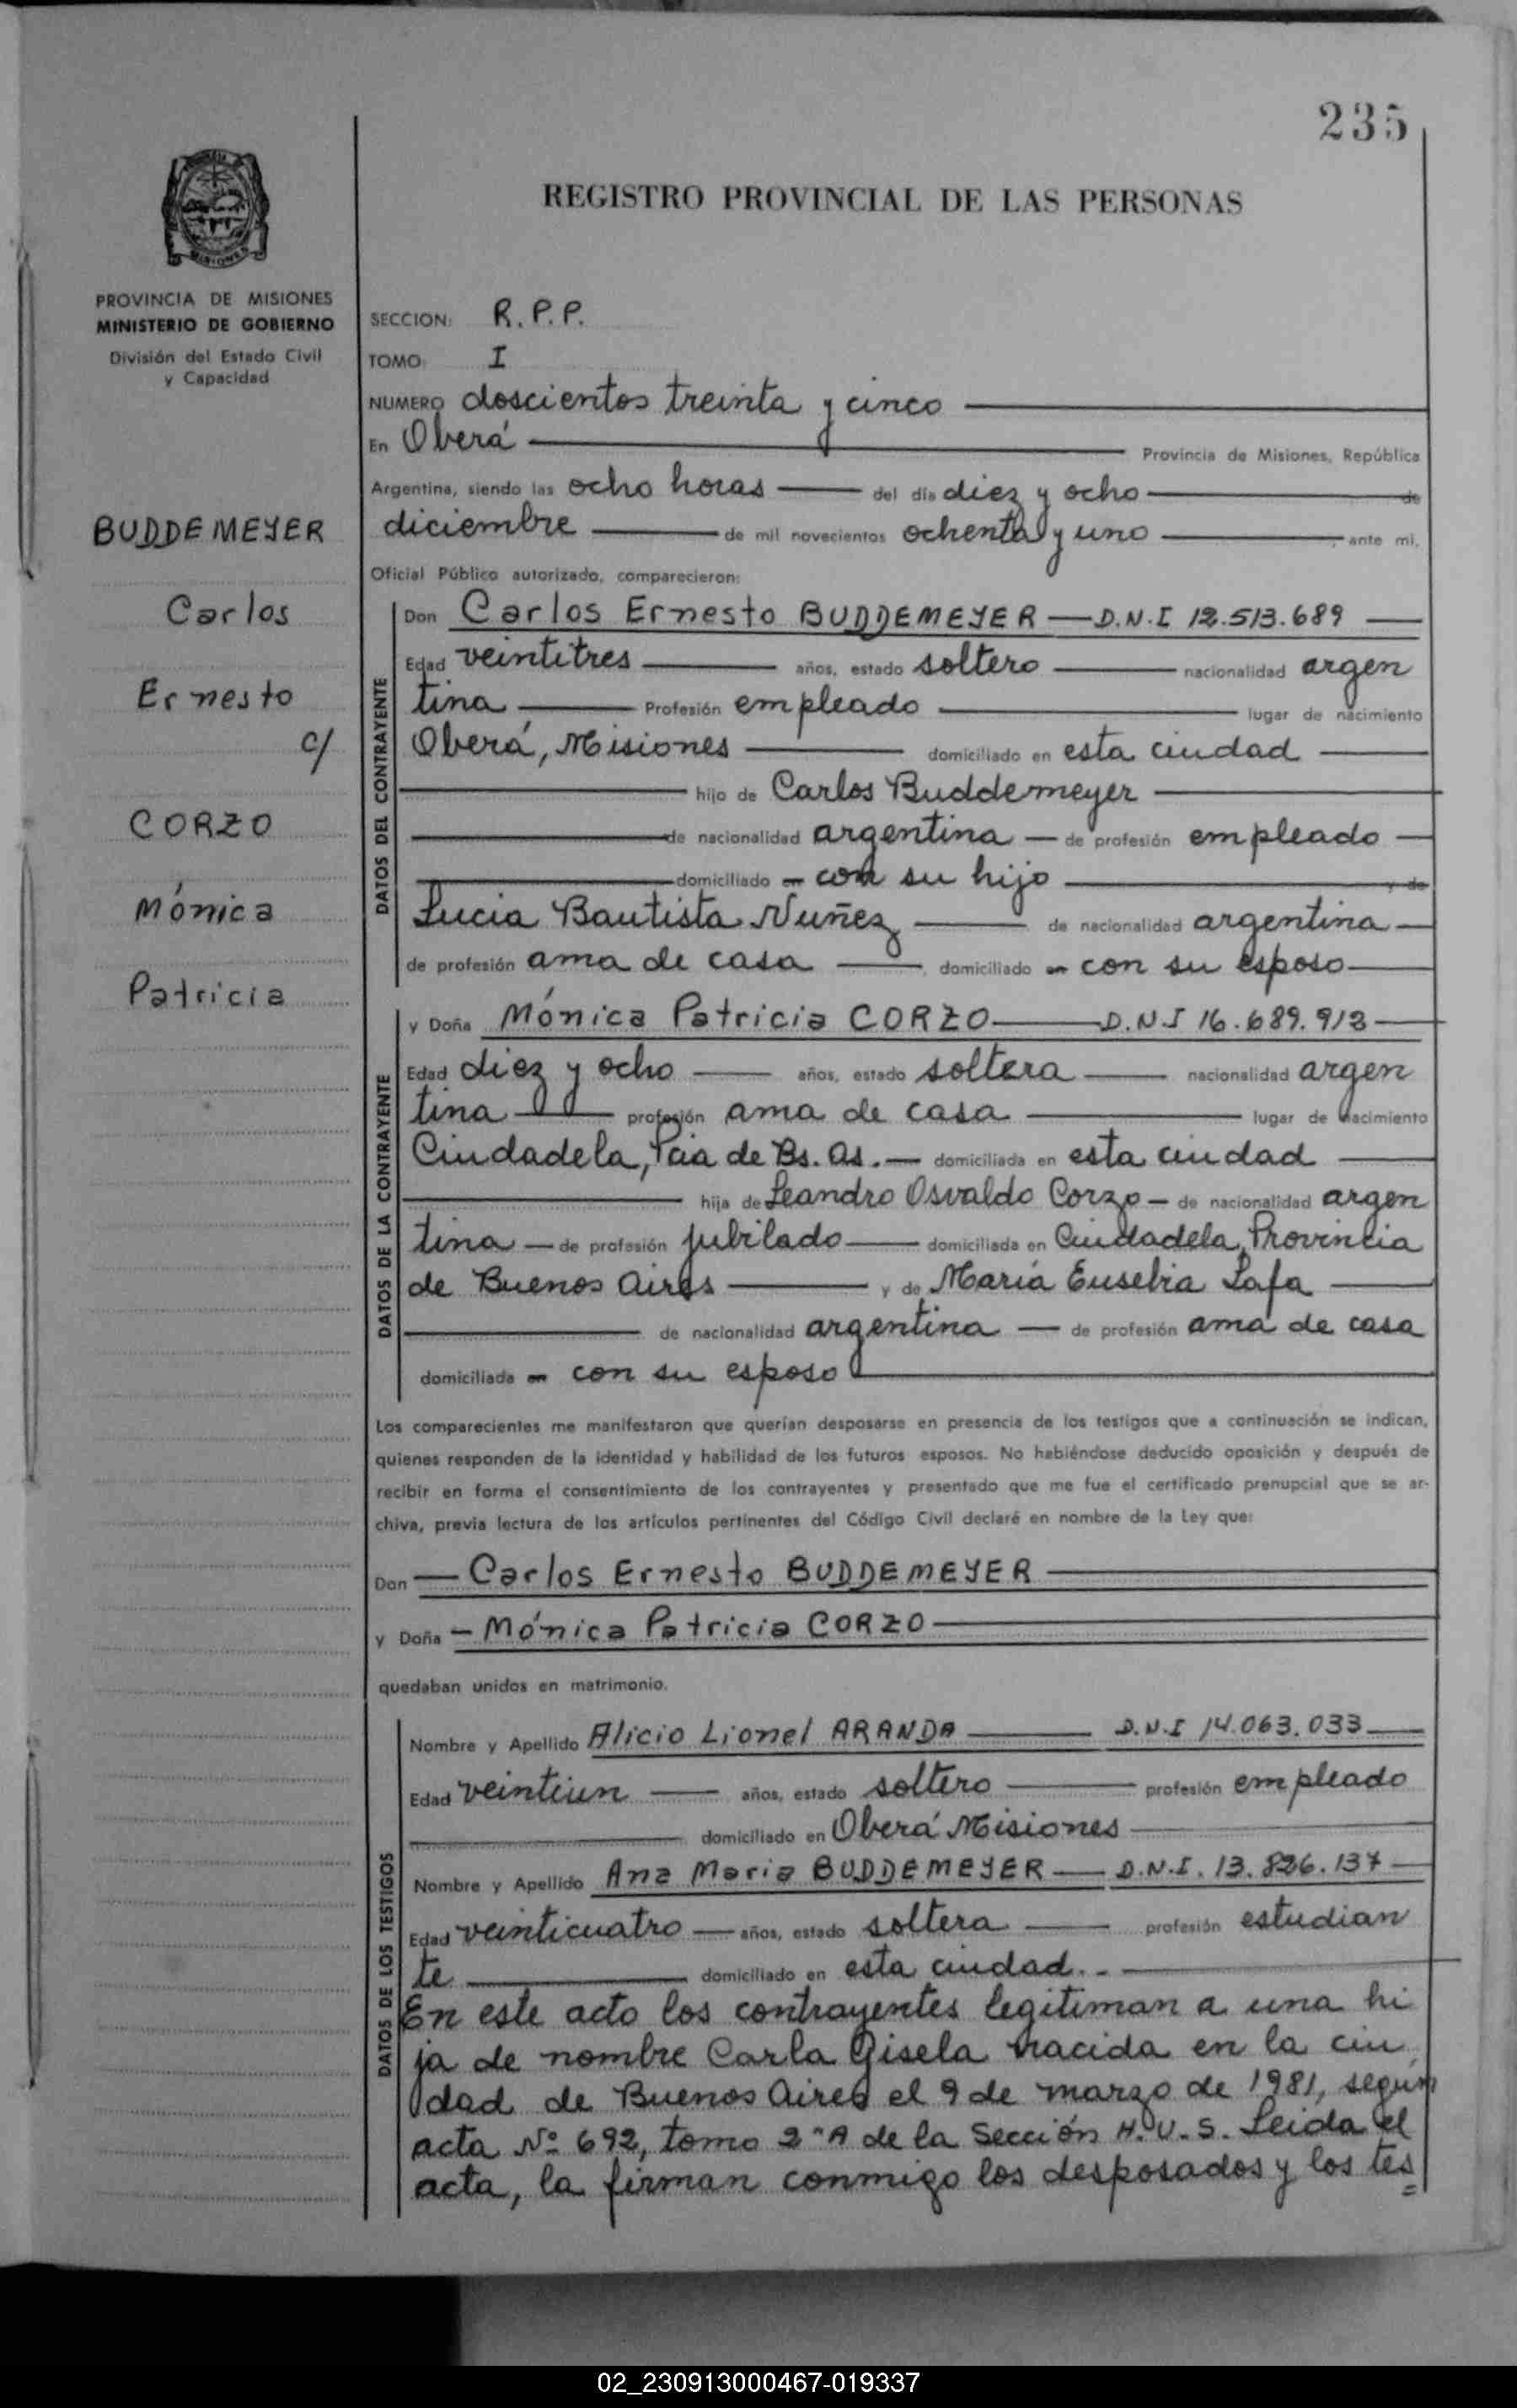 235
REGISTRO PROVINCIAL DE LAS PERSONAS
PROVINCIA DE MISIONES
MINISTERIO DE GOBIERNO
División del Estado Civil
y Capacidad
BUDDEMEYER
Carlos
Ernesto
c/
CORZO
Mónica
Patricia
SECCION: R.P.P.
TOMO: I
NUMERO doscientos treinta y cinco
En Oberá Provincia de Misiones, República
Argentina, siendo las ocho horas del día diez y ocho de
diciembre de mil novecientos ochenta y uno, ante mi,
Oficial Público autorizado, comparecieron:
DATOS DEL CONTRAYENTE
Don Carlos Ernesto BUDDEMEYER — D.N.I 12.513.689
Edad veintitres años, estado soltero nacionalidad argen
tina Profesión empleado lugar de nacimiento
Oberá, Misiones domiciliado en esta ciudad
hijo de Carlos Buddemeyer
de nacionalidad argentina — de profesión empleado
domiciliado en con su hijo y de
Lucia Bautista Nuñez de nacionalidad argentina
de profesión ama de casa, domiciliado en con su esposo
DATOS DE LA CONTRAYENTE
y Doña Mónica Patricia CORZO D.N.I 16.689.913
Edad diez y ocho años, estado soltera nacionalidad argen
tina profesión ama de casa lugar de nacimiento
Ciudadela, Pcia de Bs. As. — domiciliada en esta ciudad
hija de Leandro Osvaldo Corzo — de nacionalidad argen
tina — de profesión jubilado domiciliada en Ciudadela, Provincia
de Buenos Aires y de María Eusebia Lafa
de nacionalidad argentina — de profesión ama de casa
domiciliada en con su esposo
Los comparecientes me manifestaron que querían desposarse en presencia de los testigos que a continuación se indican,
quienes responden de la identidad y habilidad de los futuros esposos. No habiéndose deducido oposición y después de
recibir en forma el consentimiento de los contrayentes y presentado que me fue el certificado prenupcial que se ar-
chiva, previa lectura de los artículos pertinentes del Código Civil declaré en nombre de la Ley que:
Don — Carlos Ernesto BUDDEMEYER
y Doña — Mónica Patricia CORZO
quedaban unidos en matrimonio.
DATOS DE LOS TESTIGOS
Nombre y Apellido Alicio Lionel ARANDA D.N.I 14.063.033
Edad veintiun años, estado soltero profesión empleado
domiciliado en Oberá Misiones
Nombre y Apellido Ana Maria BUDDEMEYER — D.N.I. 13.826.137
Edad veinticuatro — años, estado soltera profesión estudian
te domiciliado en esta ciudad. -
En este acto los contrayentes legitiman a una hi
ja de nombre Carla Gisela nacida en la ciu
dad de Buenos Aires el 9 de marzo de 1981, según
acta Nº 692, tomo 2ºA de la Sección H.U.S. Leida el
acta, la firman conmigo los desposados y los tes=
02_230913000467-019337